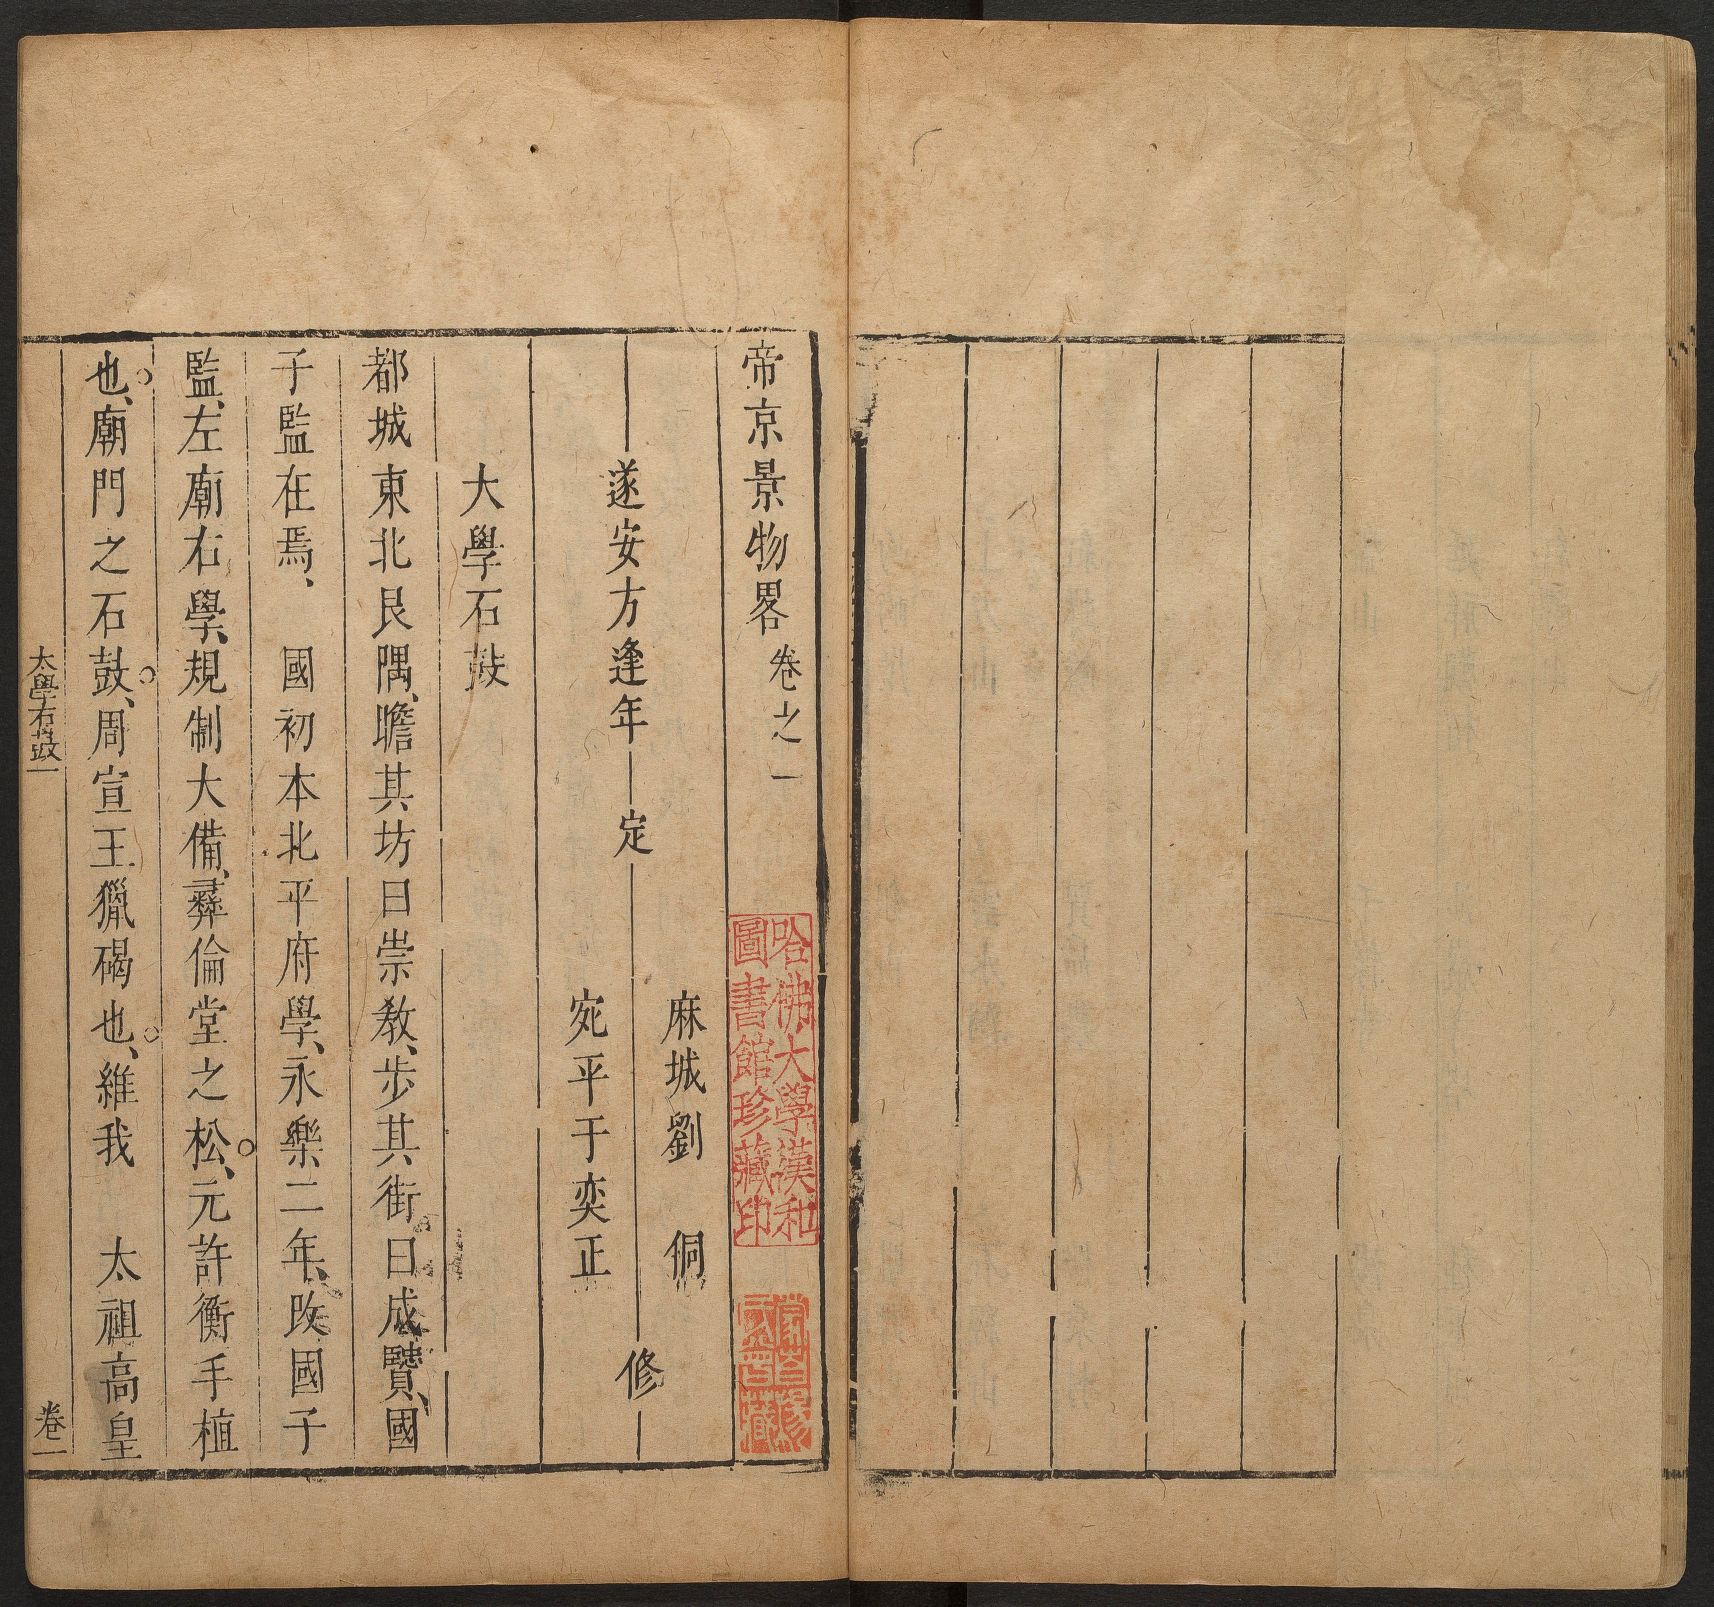 帝京景物畧卷之一
遂安方逢年定
麻城劉侗
宛平于奕正
修
大學石鼓
都城東北艮隅、瞻其坊曰崇教、步其街曰成贒、國
子監在焉、國初本北平府學、永樂二年、改國子
監、左廟右學、規制大備、彞倫堂之松、元許衡手植
也、廟門之石鼓、周宣王獵碣也、維我太祖高皇
太學石鼓一
卷一
哈佛大學漢和
圖書館珍藏印